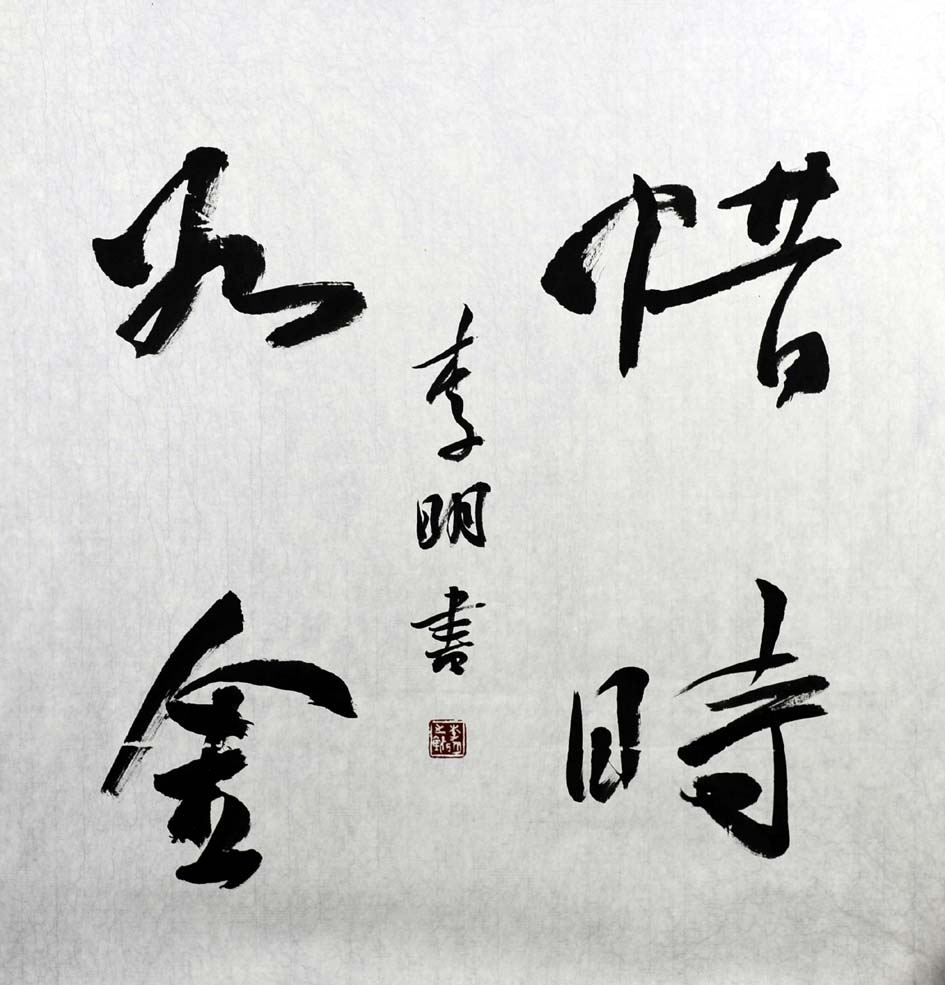 惜時
如金
李明書